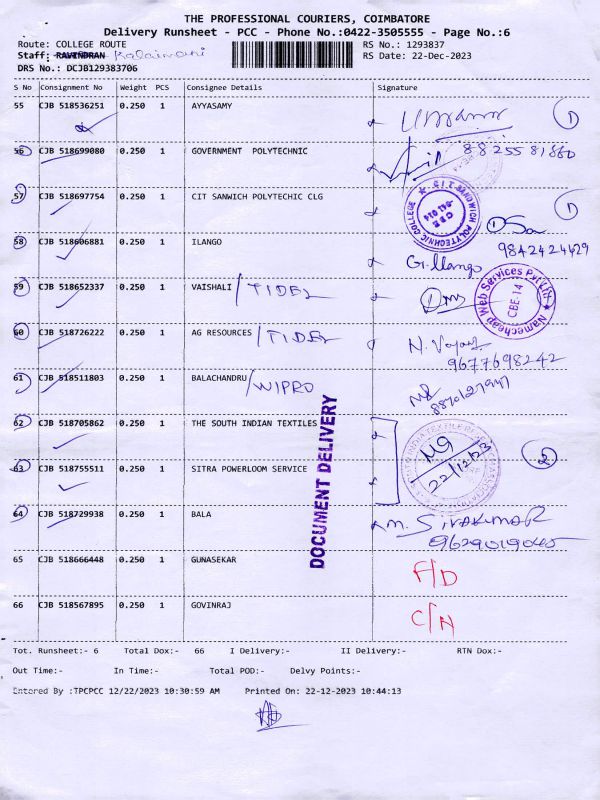 THE PROFESSIONAL COURIERS, COIMBATORE
Delivery Runsheet - PCC - Phone No.:0422-3505555 - Page No.:6
Route: COLLEGE ROUTE RS No.: 1293837
Staff: RAVINDRAN Kalaivani RS Date: 22-Dec-2023
DRS No.: DCJB129383706
S No Consignment No Weight PCS Consignee Details Signature
55 CJB 518536251 0.250 1 AYYASAMY 1
56 CJB 518699080 0.250 1 GOVERNMENT POLYTECHNIC 8825581860
57 CJB 518697754 0.250 1 CIT SANWICH POLYTECHIC CLG 1
C I T SANDWICH POLYTECHNIC COLLEGE CBE 641 014
58 CJB 518606881 0.250 1 ILANGO G. Ilango 9842424429
59 CJB 518652337 0.250 1 VAISHALI / TIDEL
Namecheap Web Services Pvt Ltd CBE-14
60 CJB 518726222 0.250 1 AG RESOURCES / TIDEL
9677698242
61 CJB 518511803 0.250 1 BALACHANDRU / WIPRO
62 CJB 518705862 0.250 1 THE SOUTH INDIAN TEXTILES
22/12/23 2
63 CJB 518755511 0.250 1 SITRA POWERLOOM SERVICE
DOCUMENT DELIVERY
64 CJB 518729938 0.250 1 BALA M. SIVAKUMAR
9629019045
65 CJB 518666448 0.250 1 GUNASEKAR F/D
66 CJB 518567895 0.250 1 GOVINRAJ C/N
Tot. Runsheet:- 6 Total Dox:- 66 I Delivery:- II Delivery:- RTN Dox:-
Out Time:- In Time:- Total POD:- Delvy Points:-
Entered By :TPCPCC 12/22/2023 10:30:59 AM Printed On: 22-12-2023 10:44:13